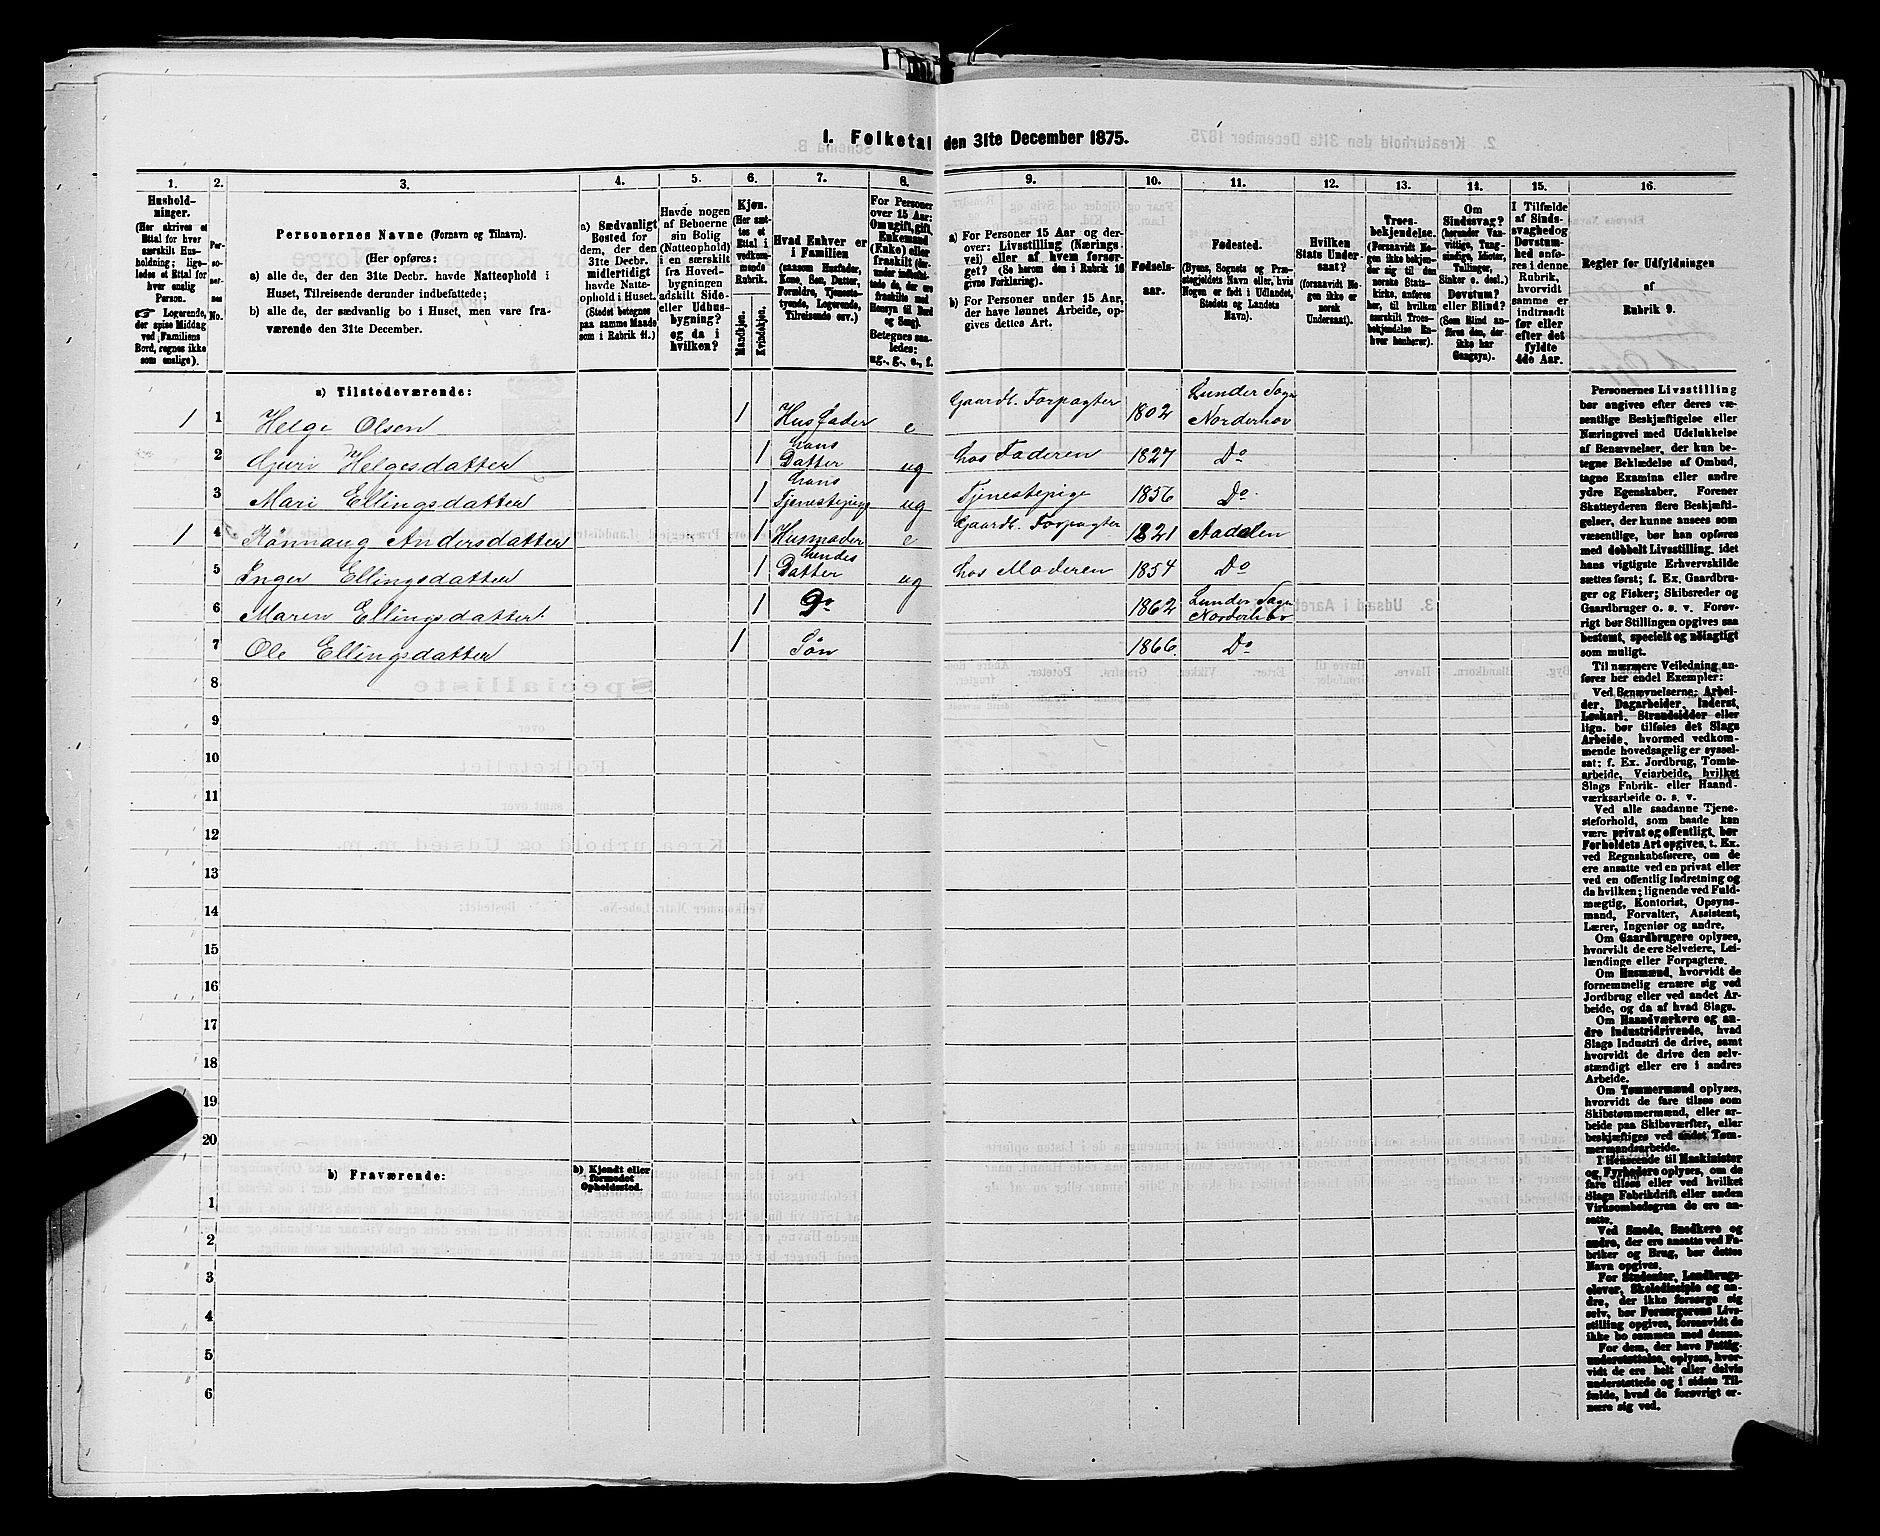 I. Folketal den 31te December 1875.
1. 2. 3. 4. 5. 6. 7. 8. 9. 10. 11. 12. 13. 14. 15. 16.
Husholdninger.
(Her skrives et Ettal for hver særskilt Husholdning; ligeledes et Ettal for hver enslig Person.
☞ Logerende, der spise Middag ved Familiens Bord, regnes ikke som enslige).
Personernes No.
Personernes Navne (Fornavn og Tilnavn).
(Her opføres:
a) alle de, der den 31te Decbr. havde Natteophold i Huset, Tilreisende derunder indbefattede;
b) alle de, der sædvanlig bo i Huset, men vare fraværende den 31te December.
a) Sædvanligt Bosted for dem, der den 31te Decbr. midlertidigt havde Natteophold i Huset. (Stedet betegnes paa samme Maade som i Rubrik 11.)
Havde nogen af Beboerne sin Bolig (Natteophold) i en særskilt fra Hovedbygningen adskilt Side- eller Udhusbygning? og da i hvilken?
Kjøn. (Her sættes et Ettal i vedkommende Rubrik.
Mandkjøn. Kvindekjøn.
Hvad Enhver er i Familien
(saasom Husfader, Kone, Søn, Datter, Forældre, Tjenestetyende, Logerende, Tilreisende osv.)
For Personer over 15 Aar: Om ugift, gift, Enkemand (Enke) eller fraskilt
Betegnes saaledes: ug., g., e., f.
a) For Personer 15 Aar og derover: Livsstilling (Næringsvei) eller af hvem forsørget? (Se herom den i Rubrik 16 givne Forklaring).
b) For Personer under 15 Aar, der have lønnet Arbeide, opgives dettes Art.
Fødselsaar.
Fødested.
(Byens, Sognets og Præstegjeldets Navn eller, hvis Nogen er født i Udlandet, Stedets og Landets Navn).
Hvilken Stats Undersaat?
(forsaavidt Nogen ikke er norsk Undersaat).
Troesbekjendelse.
(Forsaavidt Nogen ikke bekjender sig til den norske Statskirke, anføres her, til hvilken særskilt Troesbekjendelse Enhver henhører).
Om Sindssvag? (herunder Vanvittige, Tungsindige, Idioter, Tullinger, Sinker o. desl.) Døvstum? eller Blind? (Som Blind anføres den, der ikke har Gangsyn).
I Tilfælde af Sindssvaghed og Døvstumhed anføres i denne Rubrik, hvorvidt samme er indtraadt før eller efter det fyldte 4de Aar.
Regler for Udfyldningen af Rubrik 9.
a) Tilstedeværende:
1 1 Helge Olsen 1 Husfader e Gaardb. Forpagter 1802 Lunder Sogn Norderhov
2 Guri Helgesdatter 1 hans Datter ug hos Faderen 1827 Do
3 Mari Ellingsdatter 1 hans Tjenestepige ug Tjenestepige 1856 Do
1 4 Rønnaug Andersdatter 1 Husmoder e Gaardb. Forpagter 1821 Aadalen
5 Inger Ellingsdatter 1 hendes Datter ug hos Moderen 1854 Do
6 Maren Ellingsdatter 1 Do 1862 Lunder Sogn Norderhov
7 Ole Ellingsdatter 1 Søn 1866. Do
8
9
10
11
12
13
14
15
16
17
18
19
20
b) Fraværende: b) Kjendt eller formodet Opholdssted.
1
2
3
4
5
6
Personernes Livsstilling bør angives efter deres væsentlige Beskjæftigelse eller Næringsvei med Udelukkelse af Benævnelser, der kun betegne Beklædelse af Ombud, tagne Examina eller andre ydre Egenskaber. Forener Skatteyderen flere Beskjæftigelser, der kunne ansees som væsentlige, bør han opføres med dobbelt Livsstilling, idet hans vigtigste Erhvervskilde sættes først; f. Ex. Gaardbruger og Fisker; Skibsreder og Gaardbruger o. s. v. Forøvrigt bør Stillingen opgives saa bestemt, specielt og nøiagtigt som muligt.
Til nærmere Veiledning anføres her endel Exempler:
Ved Benævnelserne: Arbeider, Dagarbeider, Inderst, Løskarl, Strandsidder eller lign. bør tilføies det Slags Arbeide, hvormed vedkommende hovedsagelig er sysselsat; f. Ex. Jordbrug, Tomtearbeide, Veiarbeide, hvilket Slags Fabrik- eller Haandværksarbeide o. s. v.
Ved alle saadanne Tjenesteforhold, som baade kan være privat og offentligt, bør Forholdets Art opgives, t. Ex. ved Regnskabsførere, om de ere ansatte ved en privat eller ved en offentlig Indretning og da hvilken; lignende ved Fuldmægtig, Kontorist, Opsynsmand, Forvalter, Assistent, Lærer, Ingeniør og andre.
Om Gaardbrugere oplyses, hvorvidt de ere Selveiere, Leilændinge eller Forpagtere.
Om Husmænd, hvorvidt de fornemmelig ernære sig ved Jordbrug eller ved andet Arbeide, og da af hvad Slags.
Om Haandværkere og andre Industridrivende, hvad Slags Industri de drive, samt hvorvidt de drive den selvstændigt eller ere i andres Arbeide.
Om Tømmermænd oplyses, hvorvidt de fare tilsøs som Skibstømmermænd, eller arbeide paa Skibsværfter, eller beskjæftiges ved andet Tømmermandsarbeide.
I Henseende til Maskinister og Fyrbødere oplyses, om de fare tilsøs eller ved hvilket Slags Fabrikdrift eller anden Virksomhedsgren de ere ansatte.
Ved Smede, Snedkere og andre, der ere ansatte ved Fabriker og Brug, bør dettes Navn opgives.
For Studenter, Landbrugselever, Skoledisciple og andre, der ikke forsørge sig selv, bør Forsørgerens Livsstilling opgives, forsaavidt de ikke bo sammen med denne.
For dem, der have Fattigunderstøttelse, oplyses, hvorvidt de ere helt eller delvis understøttede og i sidste Tilfælde, hvad de forøvrigt ernære sig ved.